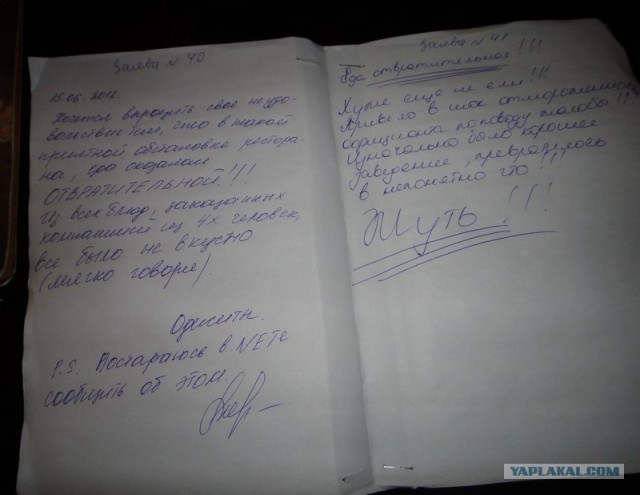 Заява N 40
15.06.2012.
Хочется выразить свое неудо-
вольствие тем, что в такой
приятной обстановке рестора-
на, еда оказалась
ОТВРАТИТЕЛЬНОЙ!!!
Из всех блюд, заказанных
компанией из 4х человек,
все было не вкусно
(мягко говоря).
P.S. Постараюсь в NETе
сообщить об этом.
Заява N 41
Еда отвратительная!!!
Хуже еще не ели!!!
Привело в шок отмороженность
официанта по поводу жалобы!!!
Изначально было хорошее
заведение, превратилось
в непонятно что!!!
Жуть!!!
YAPLAKAL.COM